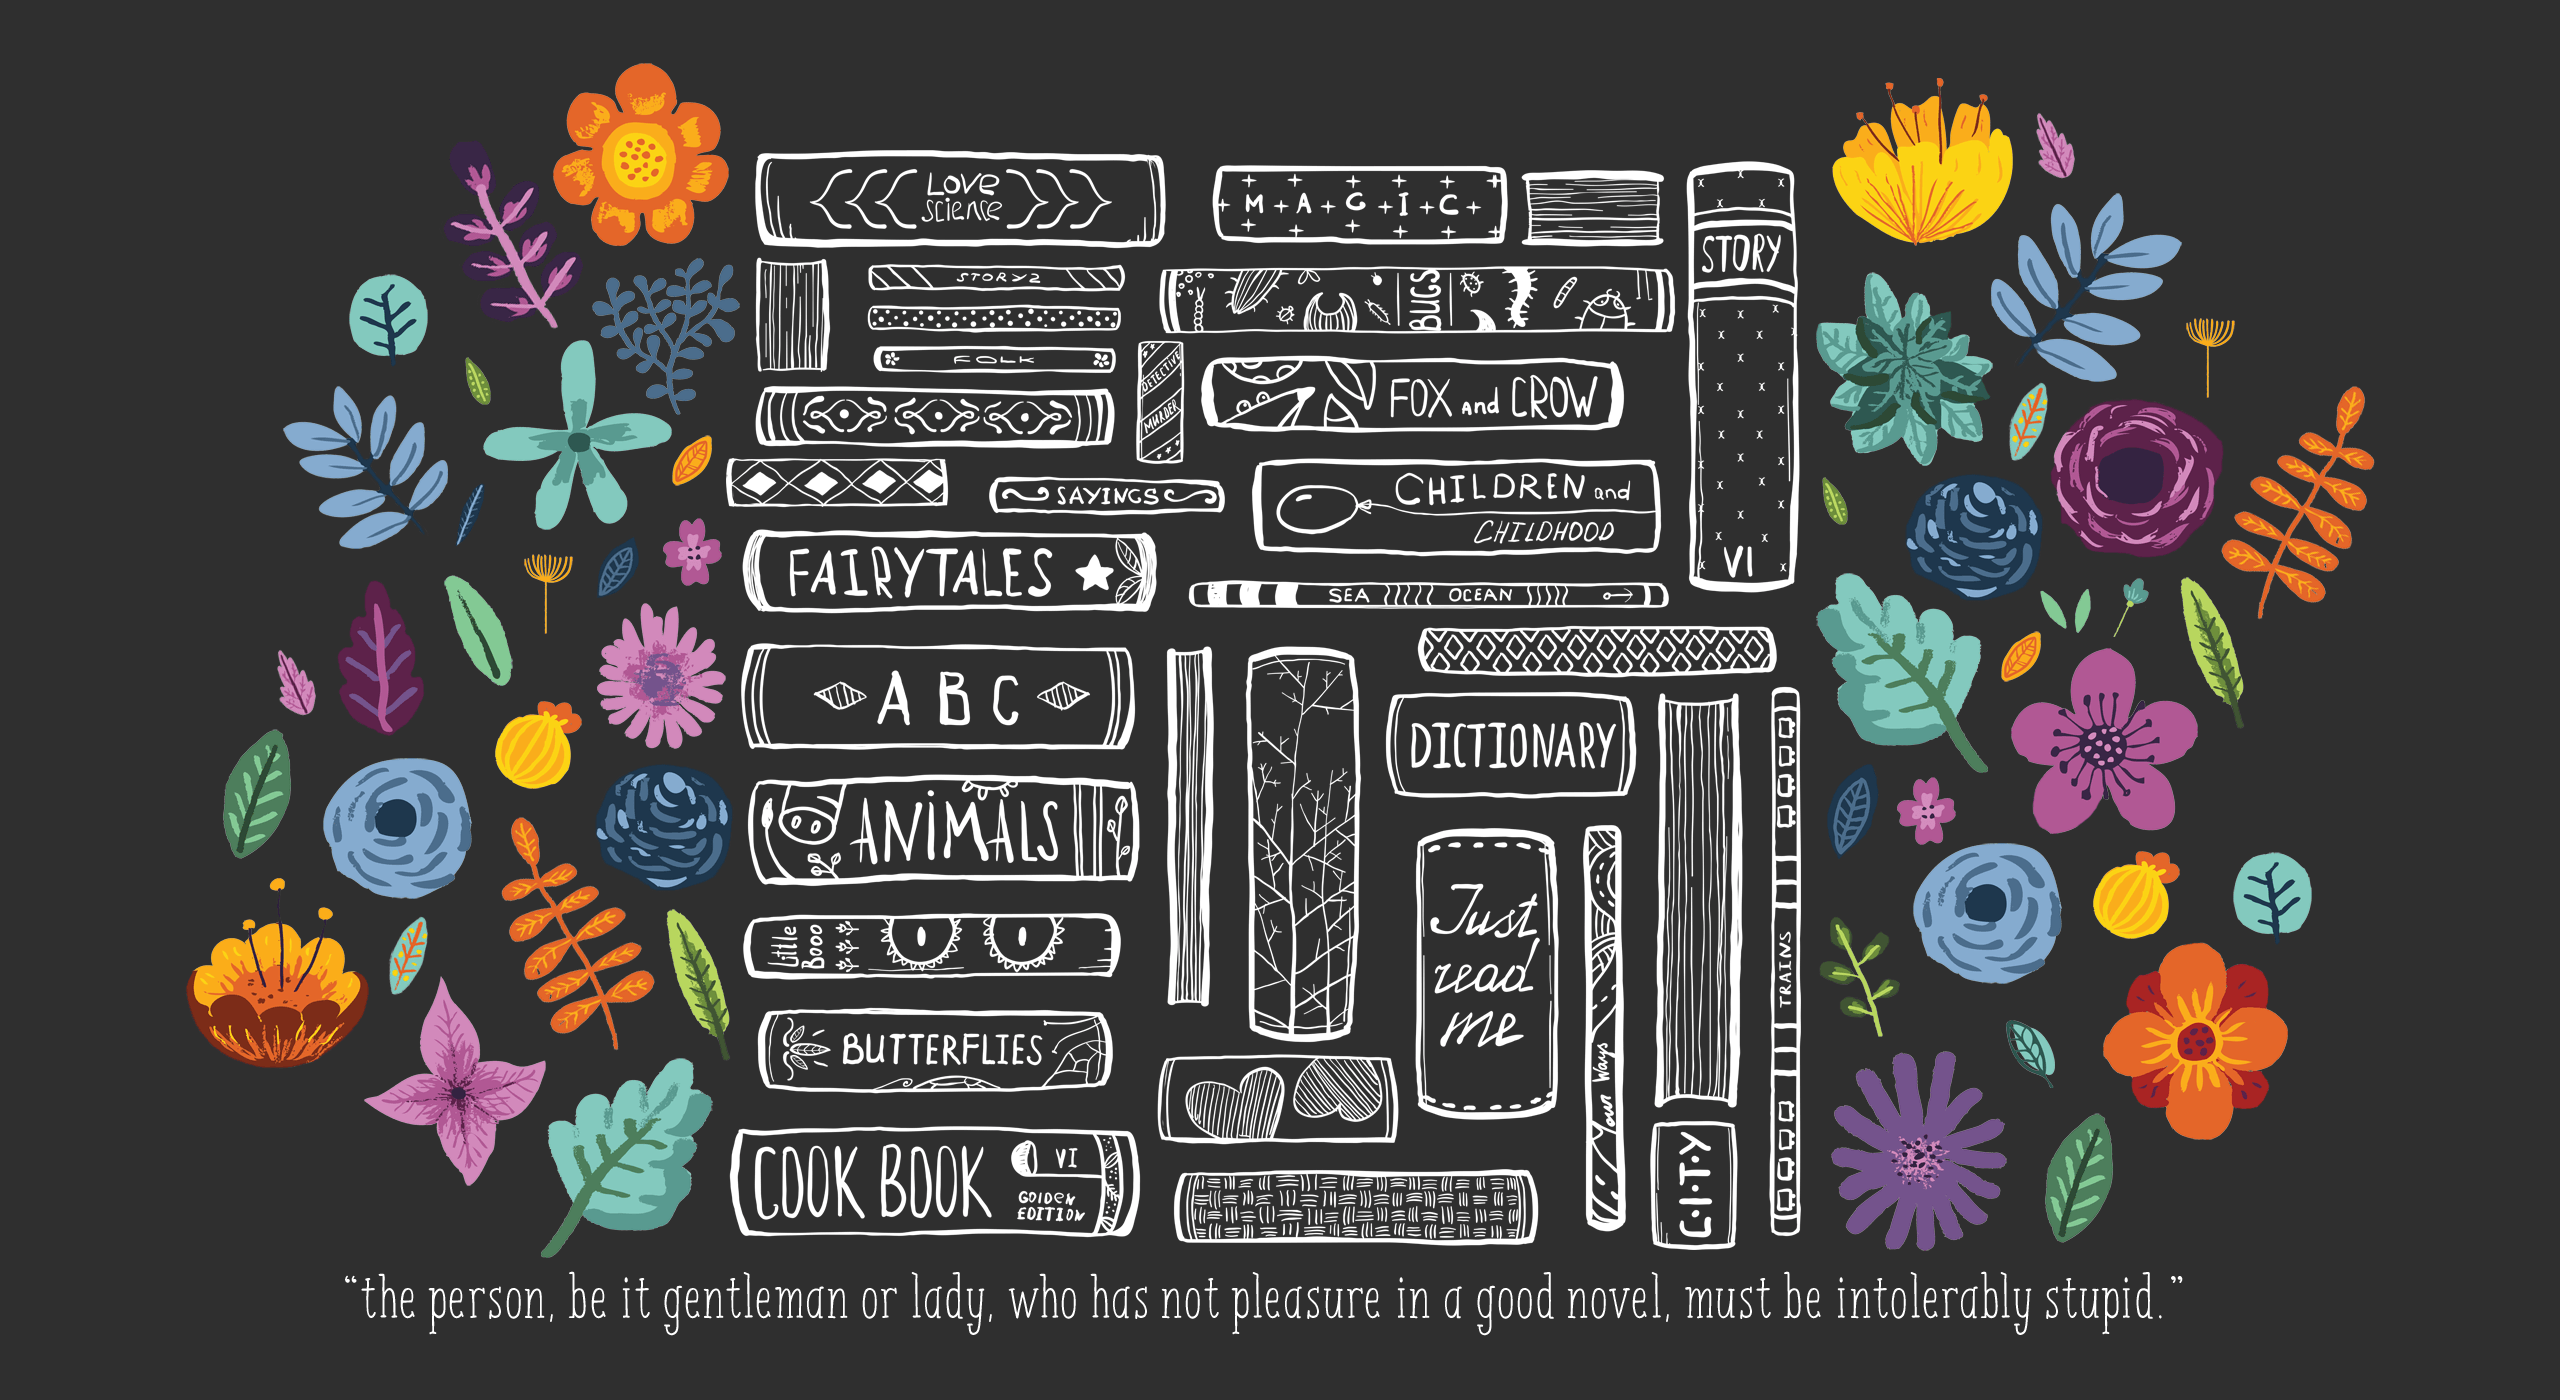 LOVE
science
M A G I C
STORY
VI
STORY2
BUGS
FOLK
DETECTIVE
MURDER
FOX and CROW
SAYINGS
CHILDREN and
CHILDHOOD
FAIRYTALES
SEA OCEAN
A B C
DICTIONARY
ANiMALS
Just
read
me
Little
Booo
TRAINS
BUTTERFLIES
Your Ways
COOK BOOK
VI
GOlDeN
EDITION
C·I·T·Y
“the person, be it gentleman or lady, who has not pleasure in a good novel, must be intolerably stupid.”